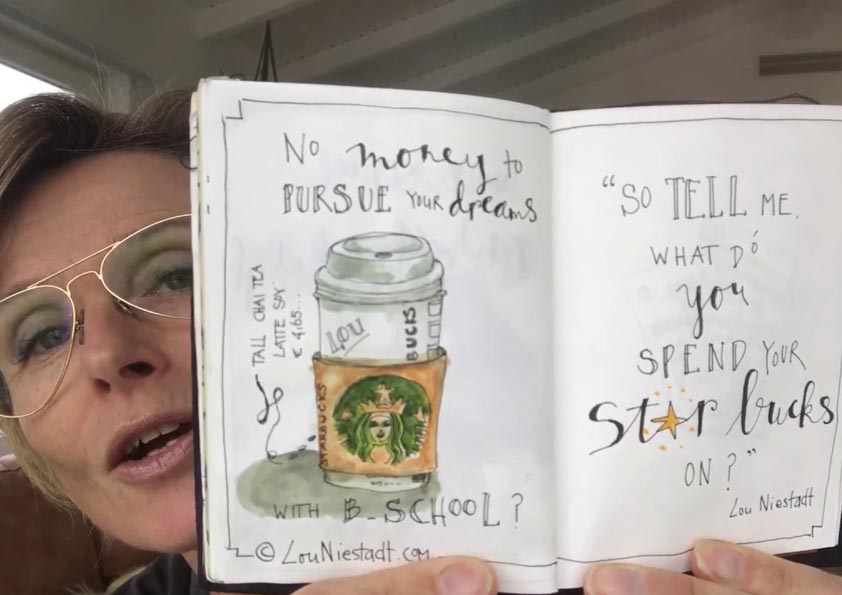 No money to
PURSUE YOUR dreams
TALL CHAI TEA
LATTE SOY
€ 4,65...
LOU
BUCKS
STARBUCKS
WITH B-SCHOOL?
© LouNiestadt.com
"SO TELL ME,
WHAT DÓ
you
SPEND YOUR
Star bucks
ON?"
Lou Niestadt